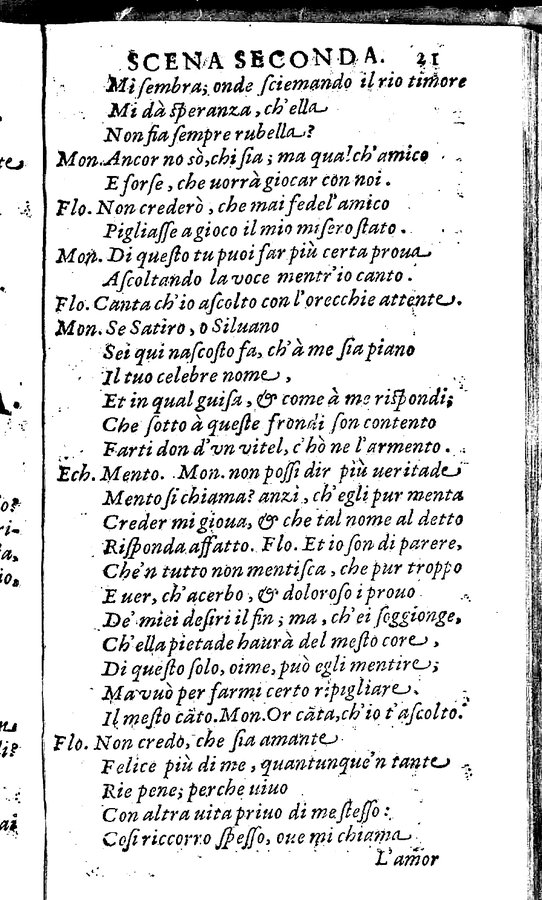 SCENA SECONDA. 21
Mi sembra; onde sciemando il rio timore
Mi dà speranza, ch'ella
Non fia sempre rubella?
Mon. Ancor no sò, chi sia; ma qualch'amico
E forse, che uorrà giocar con noi.
Flo. Non crederò, che mai fedel'amico
Pigliasse a gioco il mio misero stato.
Mon. Di questo tu puoi far più certa proua
Ascoltando la voce mentr'io canto.
Flo. Canta ch'io ascolto con l'orecchie attente.
Mon. Se Satiro, o Siluano
Sei qui nascosto fa, ch'à me sia piano
Il tuo celebre nome,
Et in qual guisa, & come à me rispondi;
Che sotto à queste frondi son contento
Farti don d'vn vitel, c'hò ne l'armento.
Ech. Mento. Mon. non possi dir più ueritade
Mento si chiama? anzi, ch'egli pur menta
Creder mi gioua, & che tal nome al detto
Risponda affatto. Flo. Et io son di parere,
Che'n tutto non mentisca, che pur troppo
E uer, ch'acerbo, & doloroso i prouo
De' miei desiri il fin; ma, ch'ei soggionge,
Ch'ella pietade haurà del mesto core,
Di questo solo, oime, può egli mentire;
Ma vuò per farmi certo ripigliare.
Il mesto cãto. Mon. Or cãta, ch'io t'ascolto.
Flo. Non credo, che sia amante
Felice più di me, quantunque'n tante
Rie pene; perche uiuo
Con altra uita priuo di me stesso:
Cosi riccorro spesso, oue mi chiama
L'amor